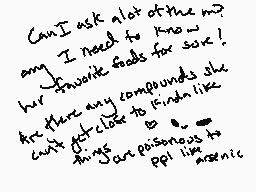 Can I ask alot of the m?
any I need to know
her favorite foods for sure!
Are there any compounds she
can't get close to kinda like
things are poisonous to
ppl like arsenic